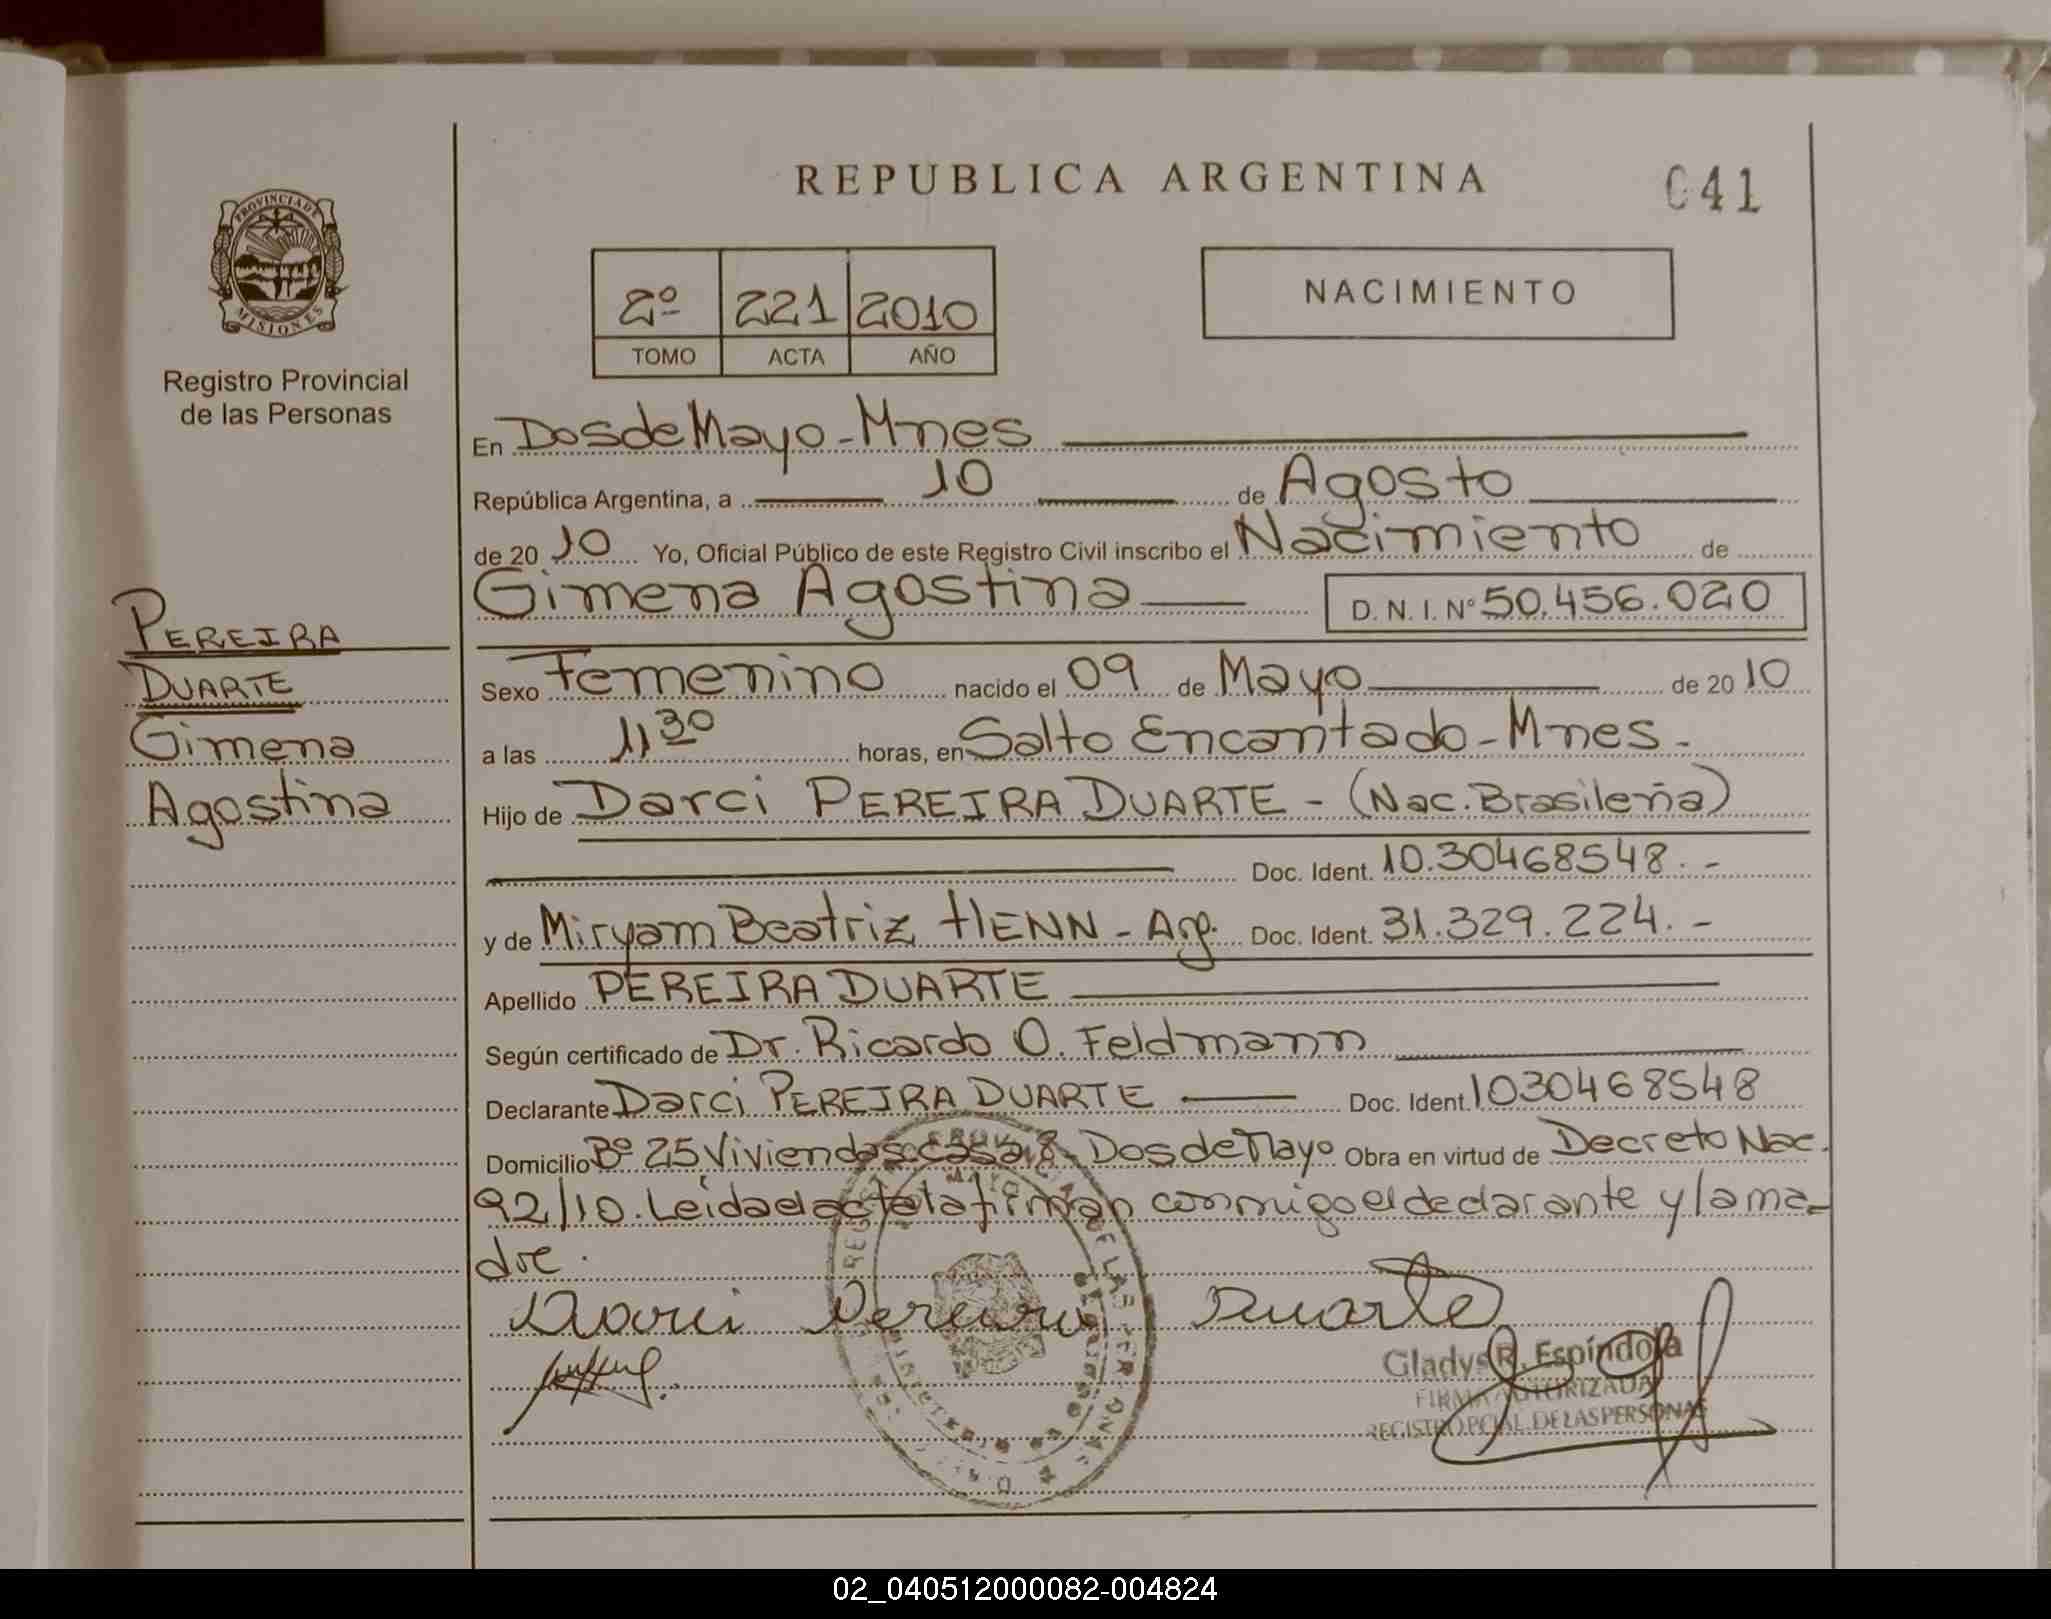 REPUBLICA ARGENTINA
041
PROVINCIA DE
MISIONES
Registro Provincial
de las Personas
2º 221 2010
TOMO ACTA AÑO
NACIMIENTO
En Dos de Mayo - Mnes
República Argentina, a 10 de Agosto
de 20 10 Yo, Oficial Público de este Registro Civil inscribo el Nacimiento de
Gimena Agostina D. N. I. Nº 50.456.020
PEREIRA
DUARTE
Gimena
Agostina
Sexo Femenino nacido el 09 de Mayo de 20 10
a las 11 30 horas, en Salto Encantado - Mnes -
Hijo de Darci PEREIRA DUARTE - (Nac. Brasileña)
Doc. Ident. 10.30468548. -
y de Miryam Beatriz HENN - Arg. Doc. Ident. 31.329.224. -
Apellido PEREIRA DUARTE
Según certificado de Dr. Ricardo O. Feldmann
Declarante Darci PEREIRA DUARTE Doc. Ident. 1030468548
Domicilio Bº 25 Viviendas casa 8 - Dos de Mayo Obra en virtud de Decreto Nac.
92/10. Leida el acta la firman conmigo el declarante y la ma-
dre.
Darci Pereira Duarte
Gladys R. Espíndola
FIRMA AUTORIZADA
REGISTRO PCIAL. DE LAS PERSONAS
02_040512000082-004824